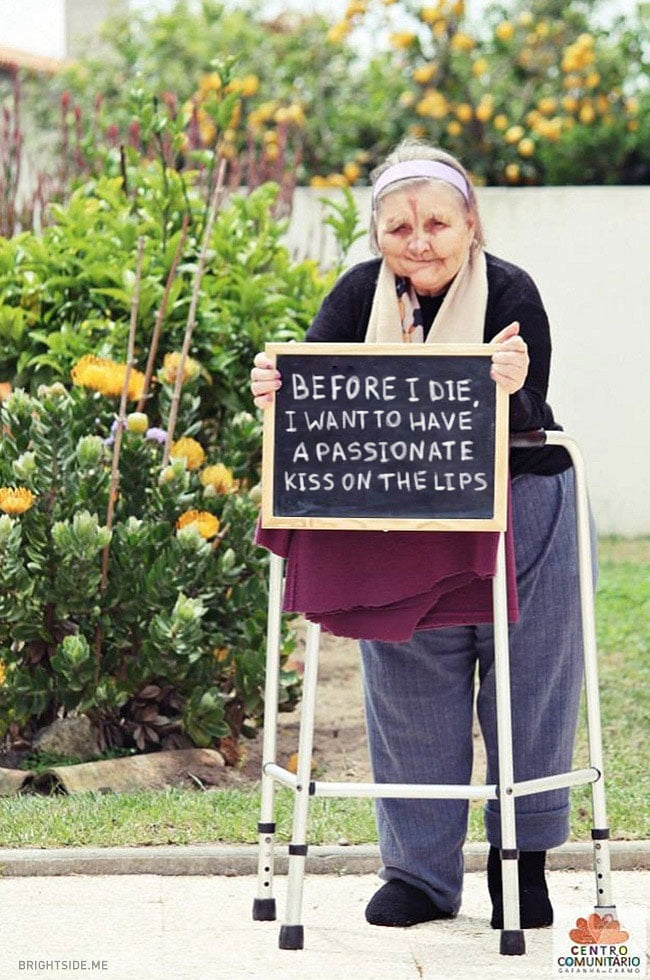 BEFORE I DIE,
I WANT TO HAVE
A PASSIONATE
KISS ON THE LIPS
BRIGHTSIDE.ME
CENTRO
COMUNITÁRIO
GAFANHA DO CARMO